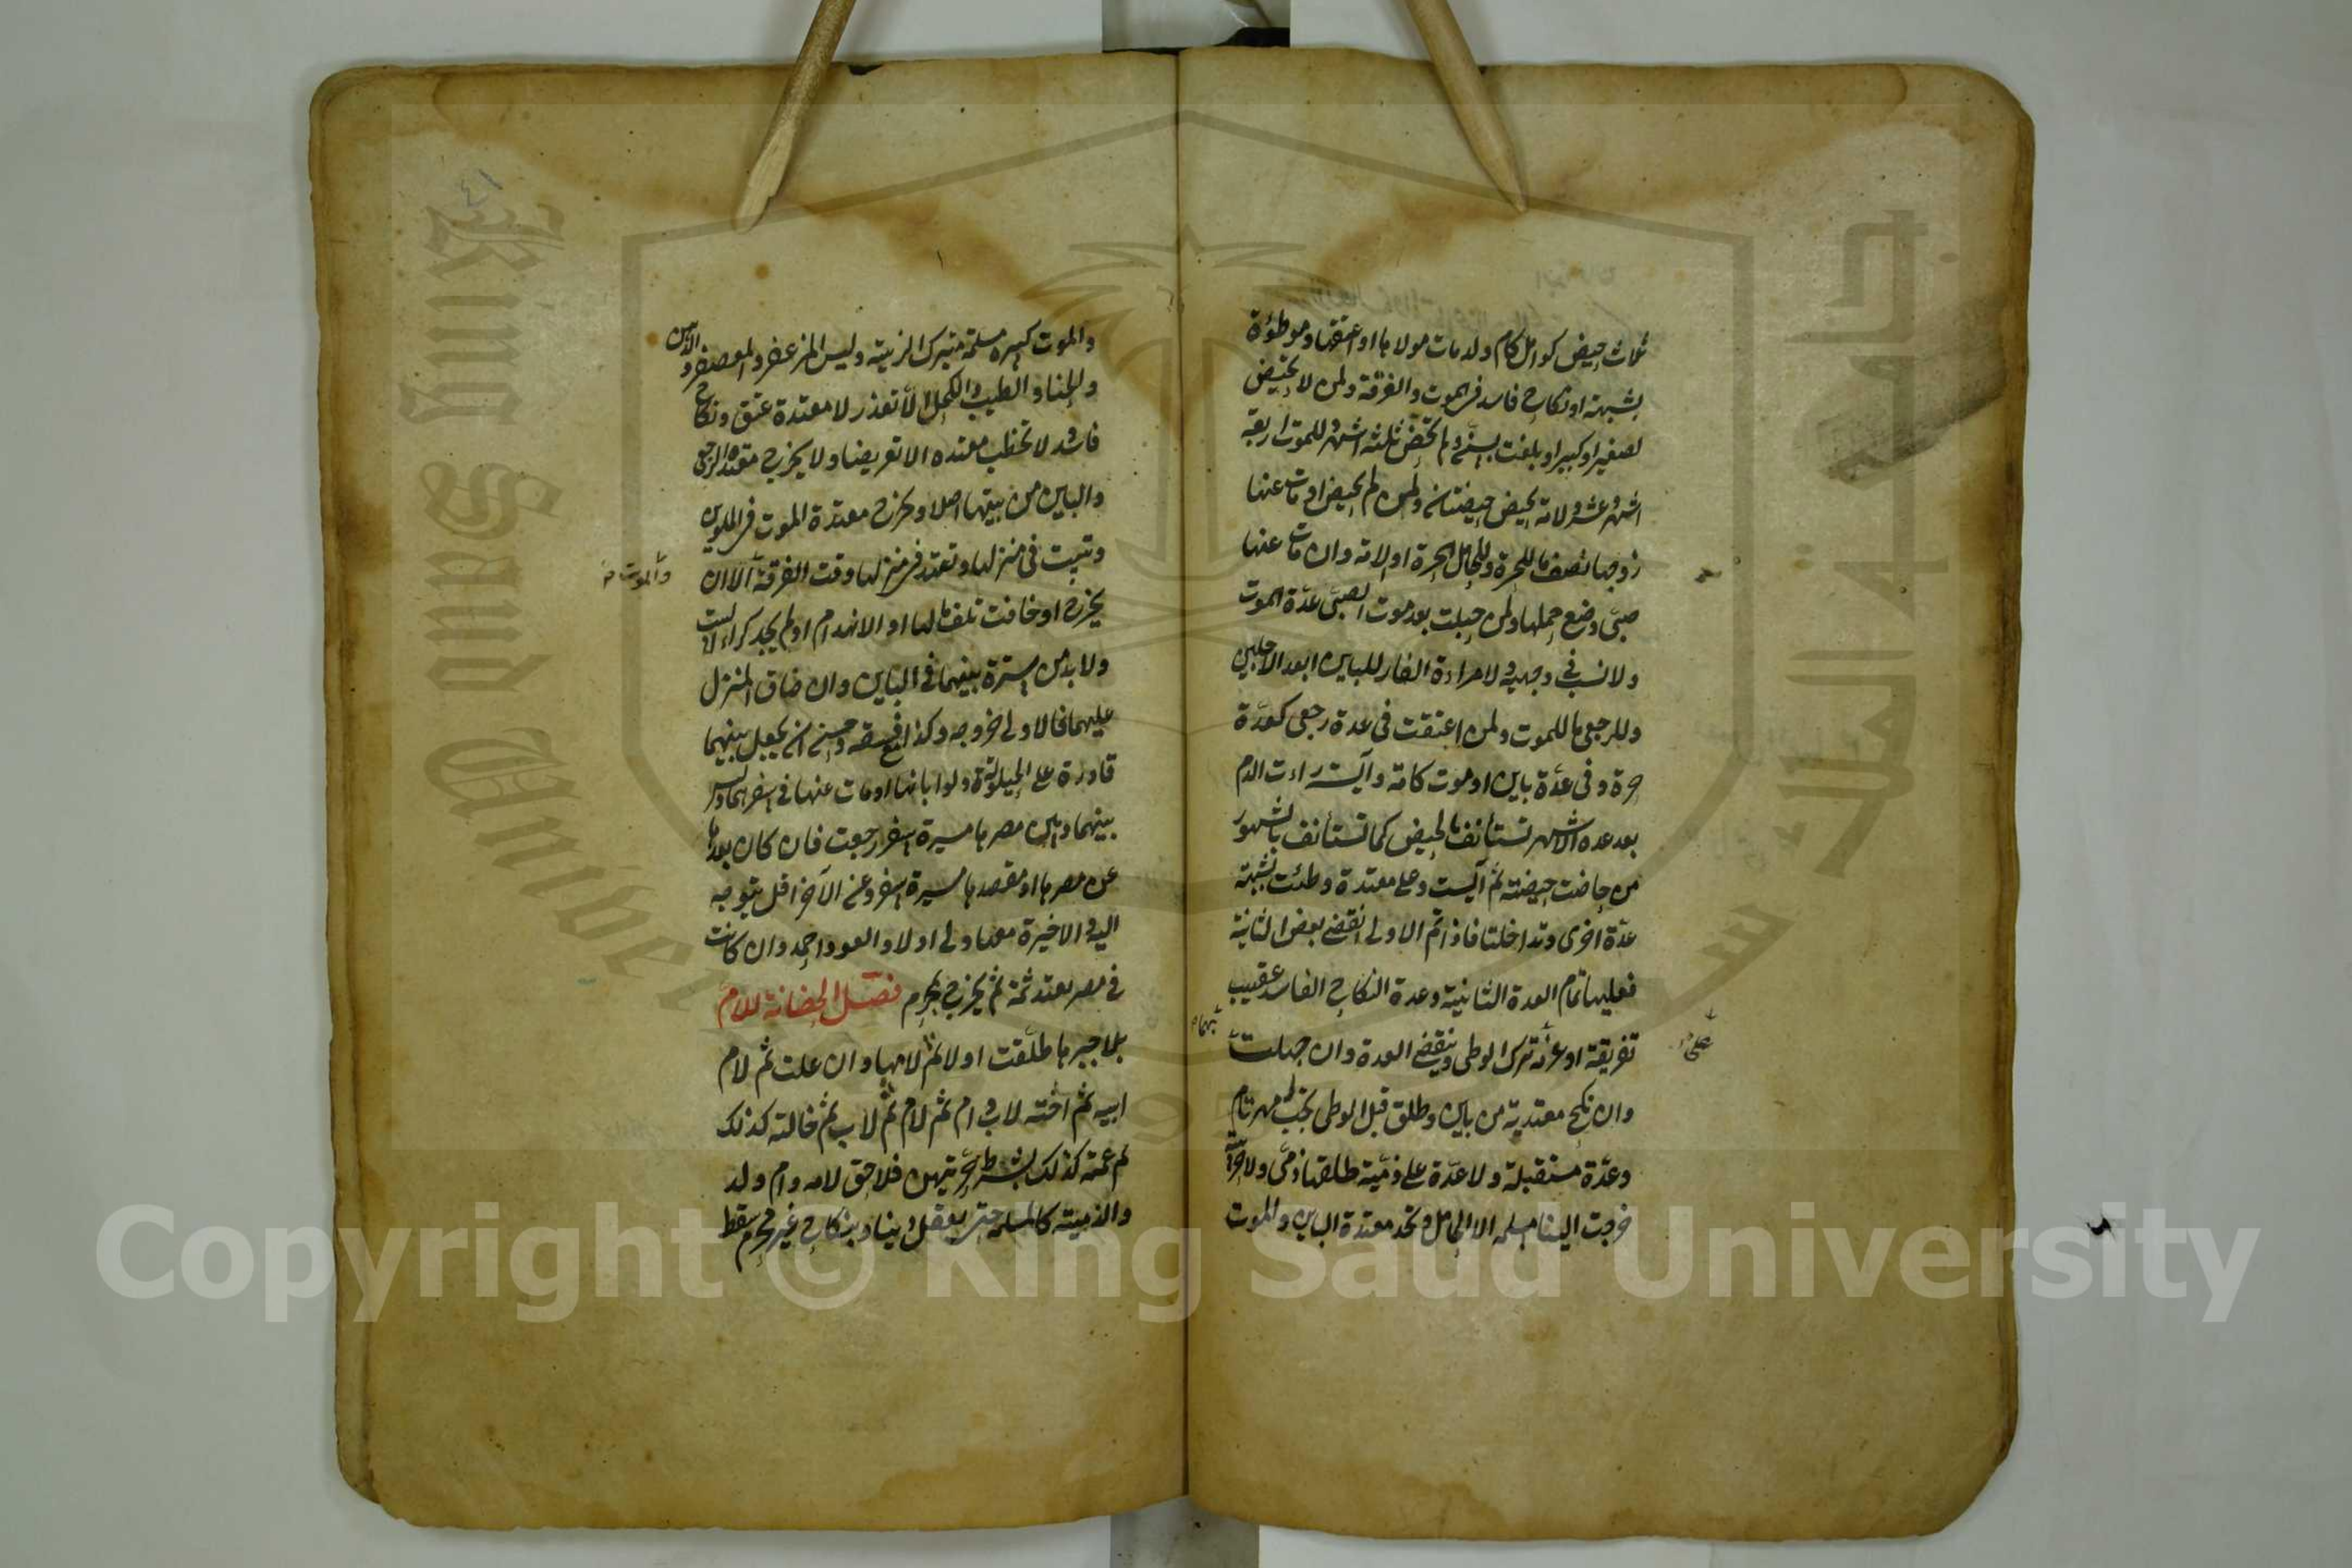 ثلاث حيض كوامل كام ولد مات مولاها او اعتقها وموطؤة
بشبهة او نكاح فاسد فى الموت والفرقة ولمن لا تحيض
لصغر او كبر او بلغت بسن ولم تحض ثلثة اشهر وللموت اربعة
اشهر وعشر ولامة تحيض حيضتان ولمن لم تحض او مات عنها
زوجها نصف ما للحرة وللحامل الحرة او الامة وان مات عنها
صبى وضع حملها ولمن حبلت بعد موت الصبى عدة الموت
ولا نسب فى وجهيه ولامرأة الفار للباين ابعد الاجلين
وللرجعى ما للموت ولمن اعتقت فى عدة رجعى كعدة
حرة وفى عدة باين او موت كامة وآيسة رات الدم
بعد عدة الاشهر تستأنف بالحيض كما تستأنف بالشهور
من حاضت حيضة ثم آيست وعلى معتدة وطئت بشبهة
عدة اخرى وتداخلتا فاذا تم الاولى انقضى بعض الثانية
فعليها تمام العدة الثانية وعدة النكاح الفاسد عقيب
تفريقه او عزمه ترك الوطى وينقضى العدة وان جهلت
على
بهما
وان نكح معتدته من باين وطلق قبل الوطى يجب مهر تام
وعدة مستقبلة ولا عدة على ذمية طلقها ذمى ولا حربية
خرجت الينا مسلمة الا الحامل وتحد معتدة الباين والموت
٤١
والموت كبيرة مسلمة بترك الزينة ولبس المزعفر والمعصفر والدهن
والحناء والطيب والكحل الا بعذر لا معتدة عتق ونكاح
فاسد ولا تخطب معتدة الا تعريضا ولا يخرج معتدة الرجعى
والباين من بيتها اصلا وتخرج معتدة الموت فى الملوين
وتبيت فى منزلها وتعتد فى منزلها وقت الفرقة الا ان
والموت
يخرج او خافت تلف مالها او الانهدام او لم يجد كراء البيت
ولا بد من سترة بينهما فى الباين وان ضاق المنزل
عليهما فالاولى خروجه وكذا مع فسقه وحسن ان يجعل بينهما
قادرة على الحيلولة ولو ابانها او مات عنها فى سفرهما وليس
بينهما وبين مصرها مسيرة سفر رجعت فان كان بعدها
عن مصرها او مقصدها مسيرة سفر وعن الآخر اقل يتوجه
اليه وفى الاخيرة معها ولى اولا والعود احمد وان كانت
فى مصر يعتد ثمة ثم يخرج بمحرم فصل الحضانة للام
بلا جبرها طلقت او لا ثم لامها وان علت ثم لام
ابيه ثم اخته لاب وام ثم لام ثم لاب ثم خالته كذلك
ثم عمته كذلك بشرط حريتهن فلا حق لامة وام ولد
والذمية كالمسلمة حتى يعقل دينا وبنكاح غير محرم سقط